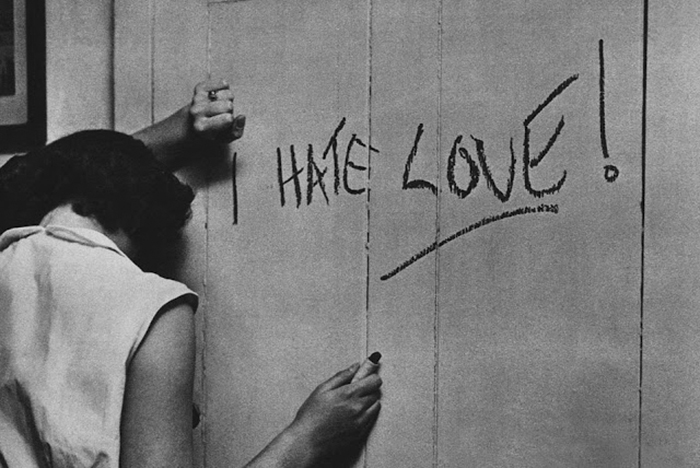 I HATE LOVE!